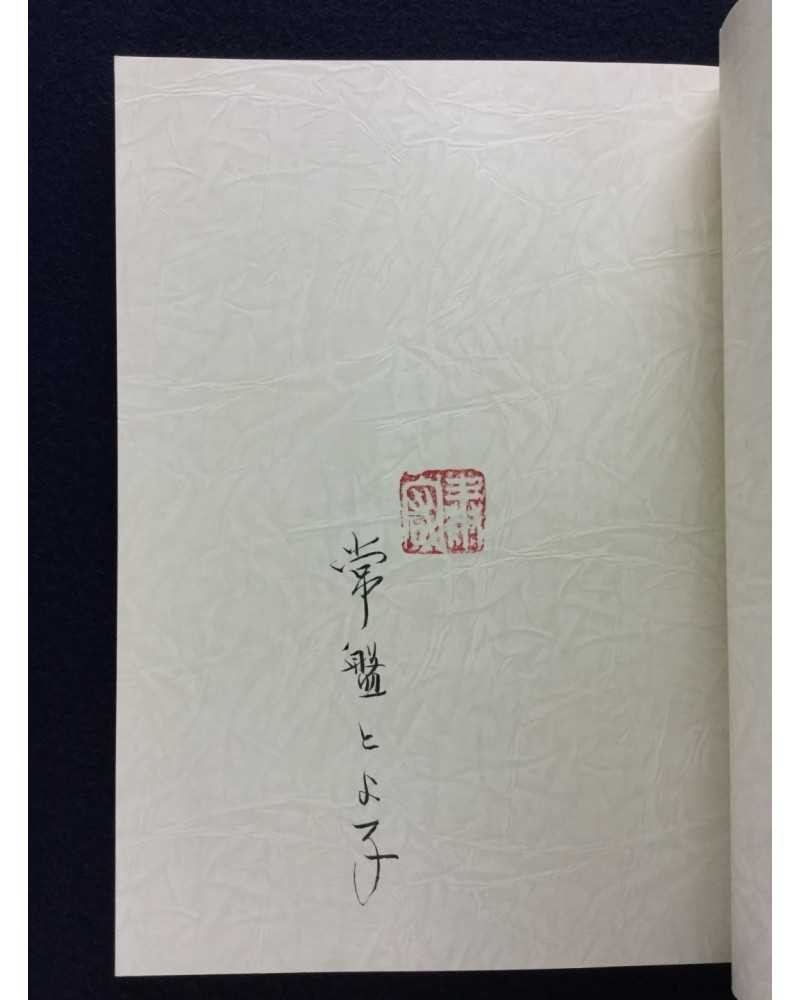 常盤とよ子